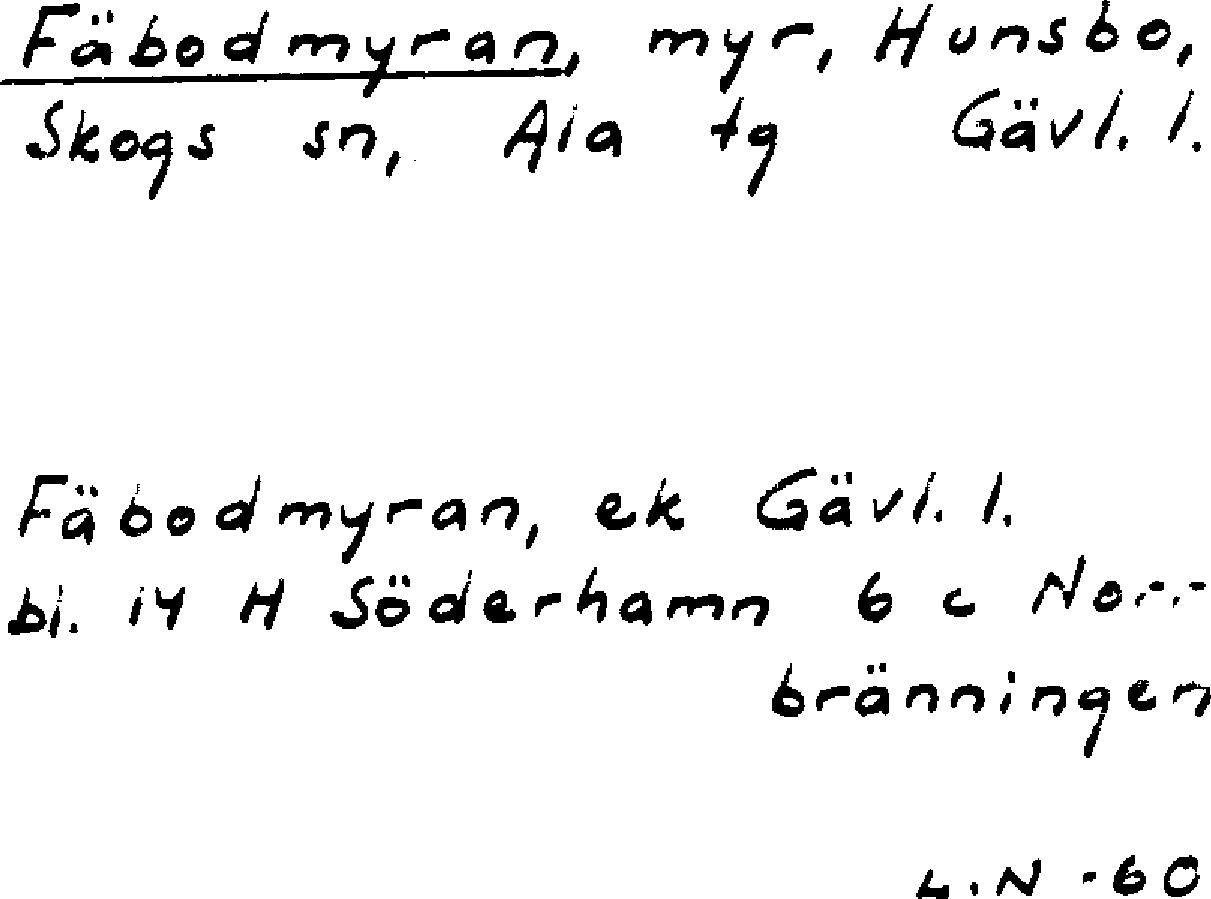 Fäbodmyran, myr, Hunsbo,
Skogs sn, Ala tg Gävl. l.
Fäbodmyran, ek Gävl. l.
bl. 14 H Söderhamn 6 c Norr-
bränningen
L.N -60